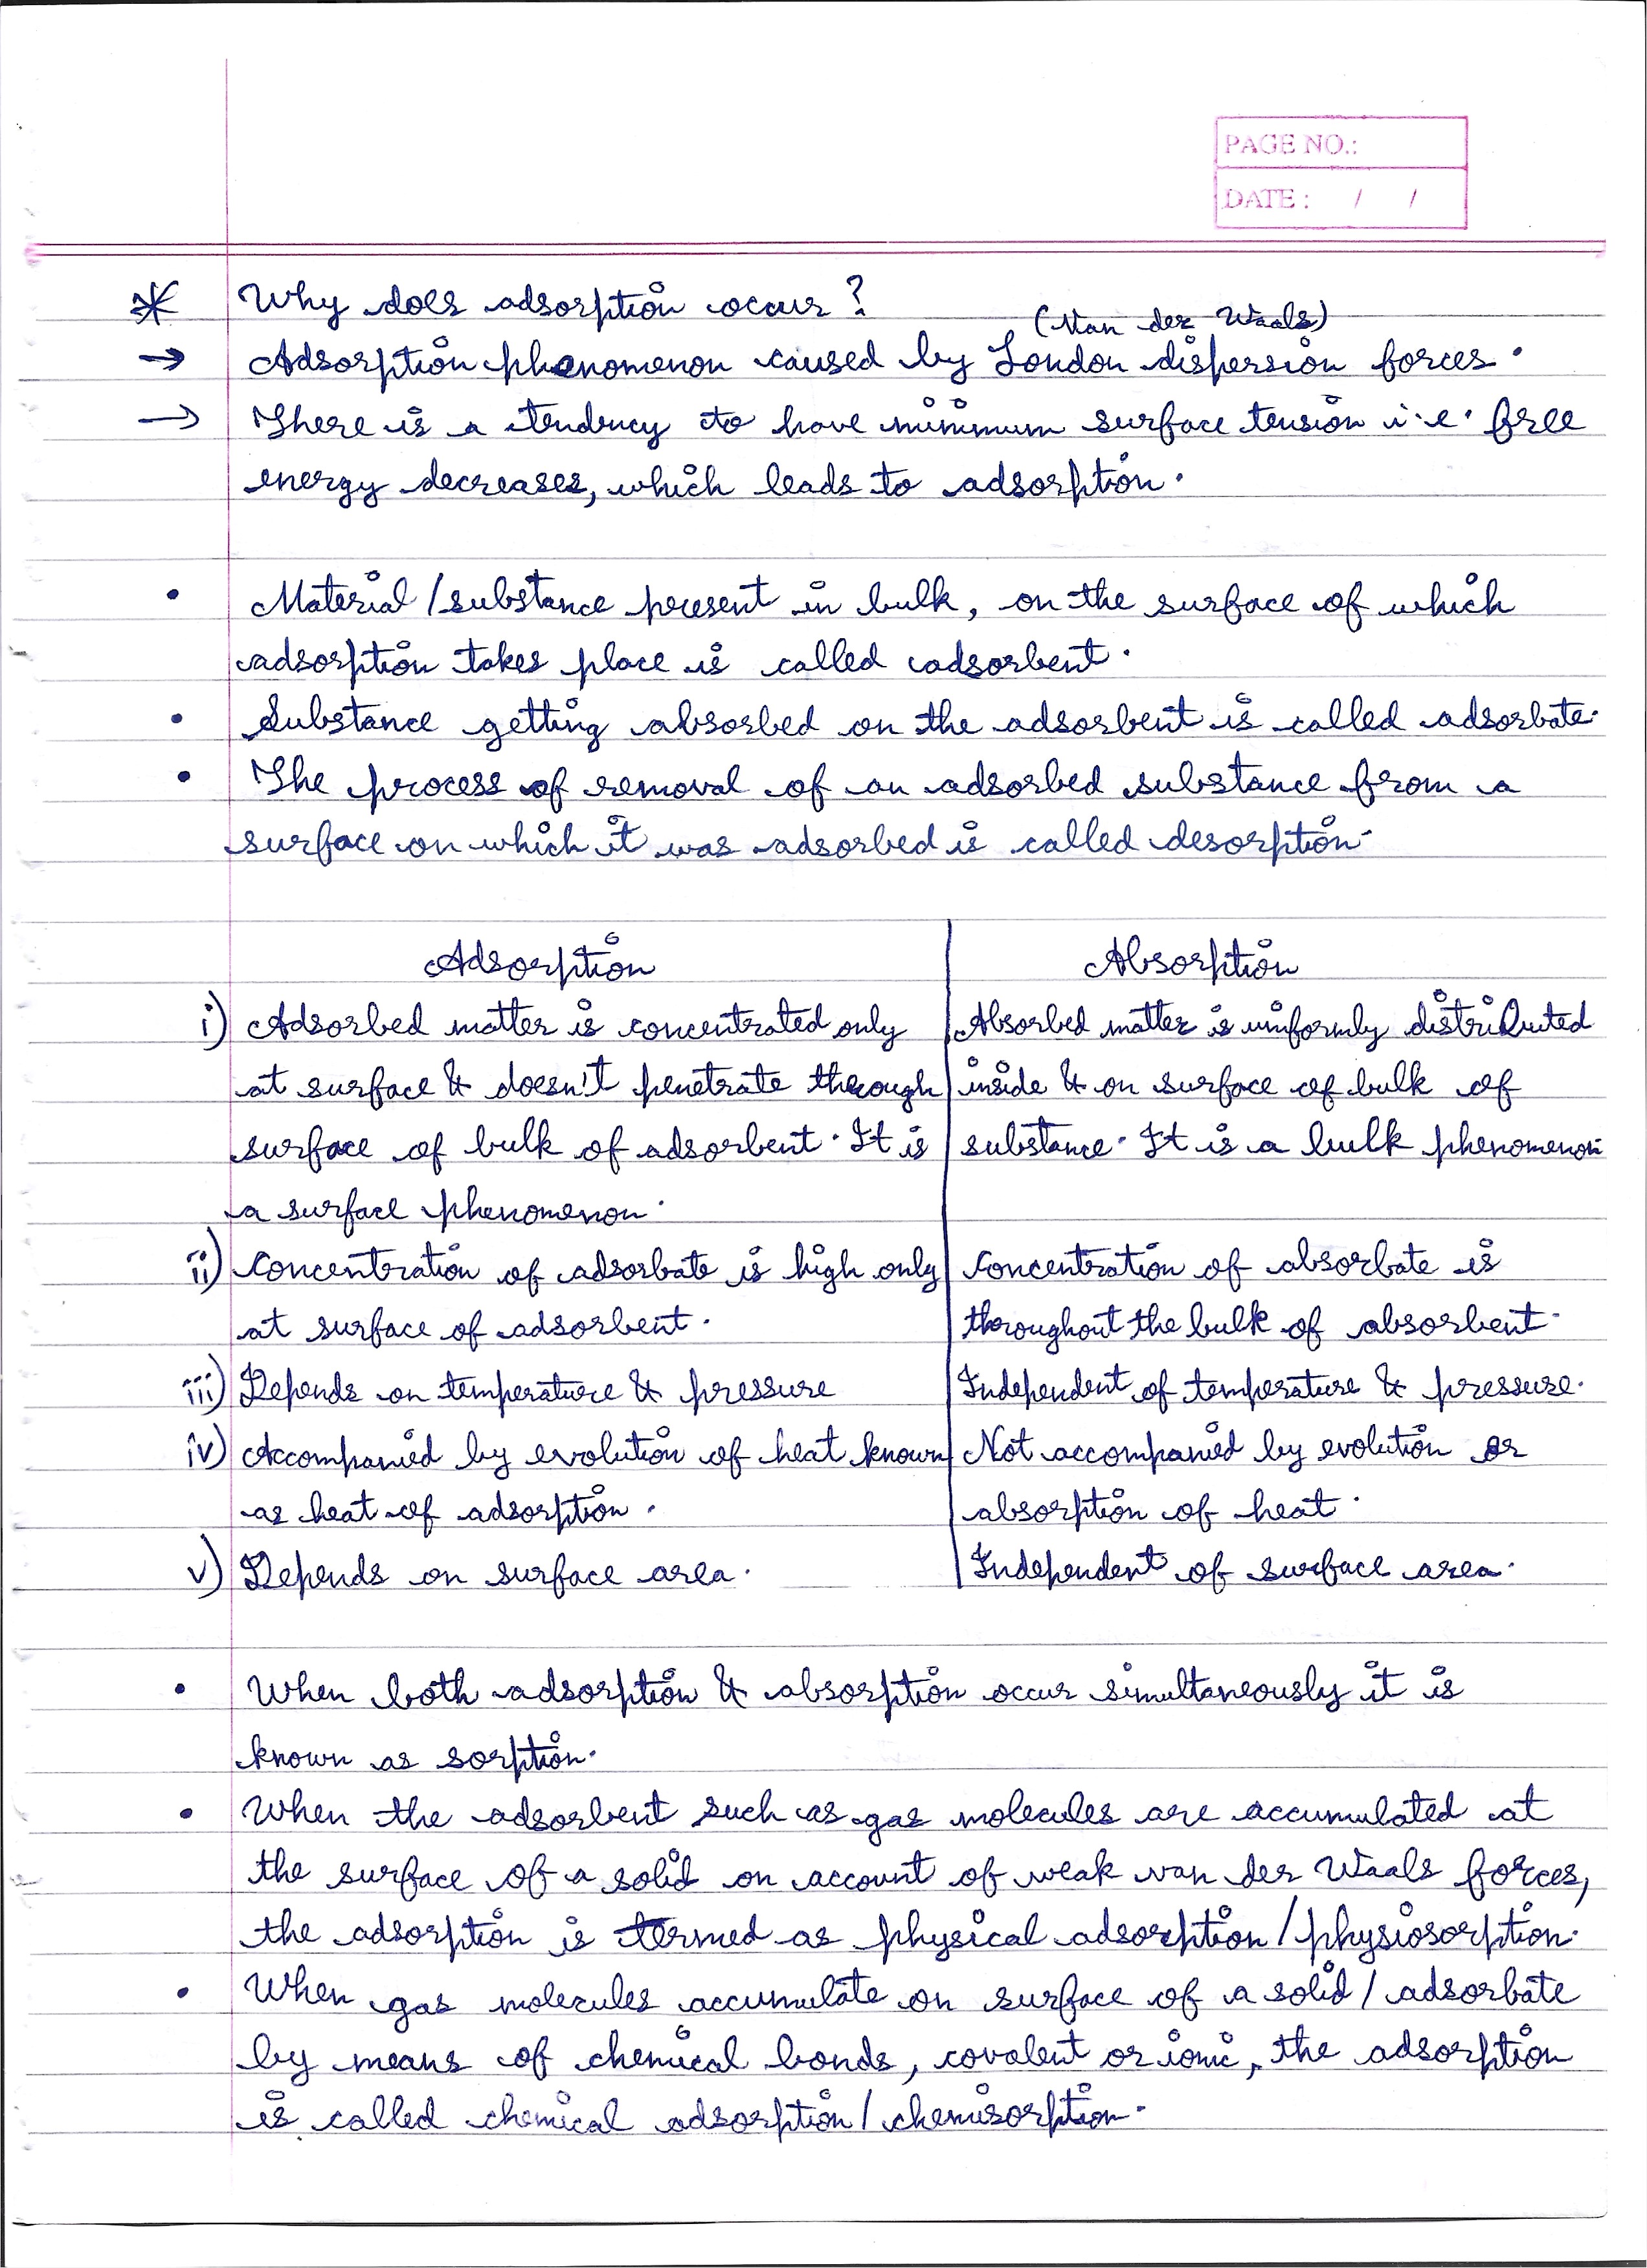 PAGE NO.:
DATE : / /
* Why does adsorption occur?
(Van der Waals)
→ Adsorption phenomenon caused by London dispersion forces.
→ There is a tendency to have minimum surface tension i.e. free
energy decreases, which leads to adsorption.
• Material/substance present in bulk, on the surface of which
adsorption takes place is called adsorbent.
• Substance getting absorbed on the adsorbent is called adsorbate.
• The process of removal of an adsorbed substance from a
surface on which it was adsorbed is called desorption.
Adsorption Absorption
i) Adsorbed matter is concentrated only Absorbed matter is uniformly distributed
at surface & doesn't penetrate through inside & on surface of bulk of
surface of bulk of adsorbent. It is substance. It is a bulk phenomenon
a surface phenomenon.
ii) Concentration of adsorbate is high only Concentration of absorbate is
at surface of adsorbent. throughout the bulk of absorbent.
iii) Depends on temperature & pressure Independent of temperature & pressure.
iv) Accompanied by evolution of heat known Not accompanied by evolution or
as heat of adsorption. absorption of heat.
v) Depends on surface area. Independent of surface area.
• When both adsorption & absorption occur simultaneously it is
known as sorption.
• When the adsorbent such as gas molecules are accumulated at
the surface of a solid on account of weak van der Waals forces,
the adsorption is termed as physical adsorption/physiosorption.
• When gas molecules accumulate on surface of a solid/adsorbate
by means of chemical bonds, covalent or ionic, the adsorption
is called chemical adsorption/chemisorption.